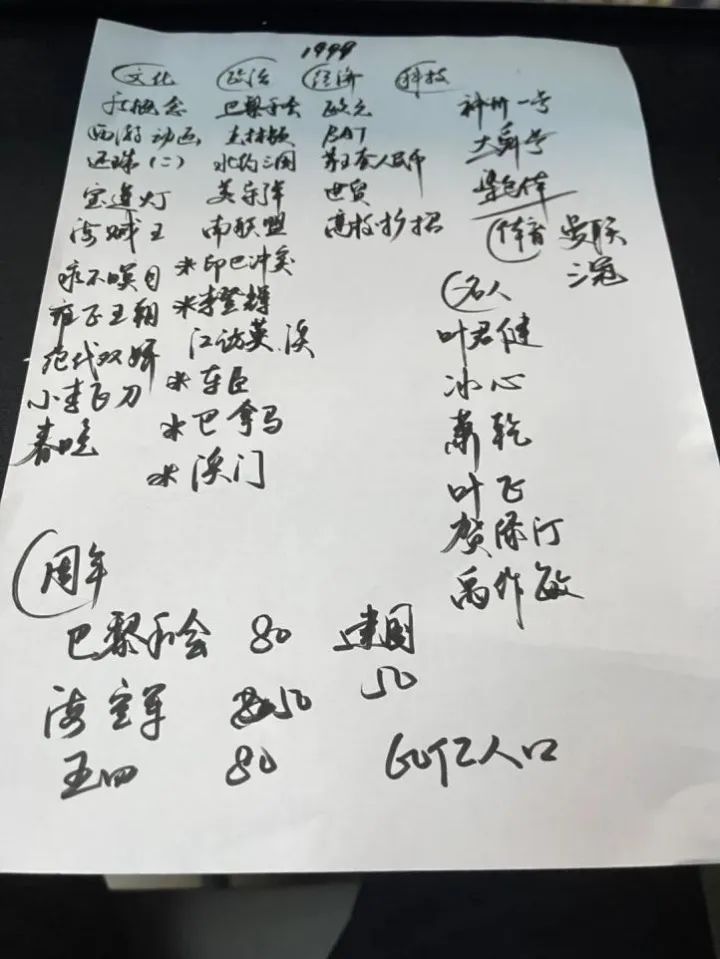 1999
文化 政治 经济 科技
新概念 巴黎和会 欧元 神舟一号
西游动画 杰林顿 BAT 大舜号
还珠(二) 北约三国 第五套人民币
宝莲灯 美导弹 世贸
海贼王 南联盟 高校扩招 体育 曼联
永不瞑目 *印巴冲突 三冠
雍正王朝 *李登辉 名人
绝代双娇 江访英、澳 叶君健
小李飞刀 *车臣 冰心
春晚 *巴拿马 萧乾
*澳门 叶飞
贺绿汀
周年 禹作敏
巴黎和会 80 建国
海空军 50 50
五四 80 60亿人口